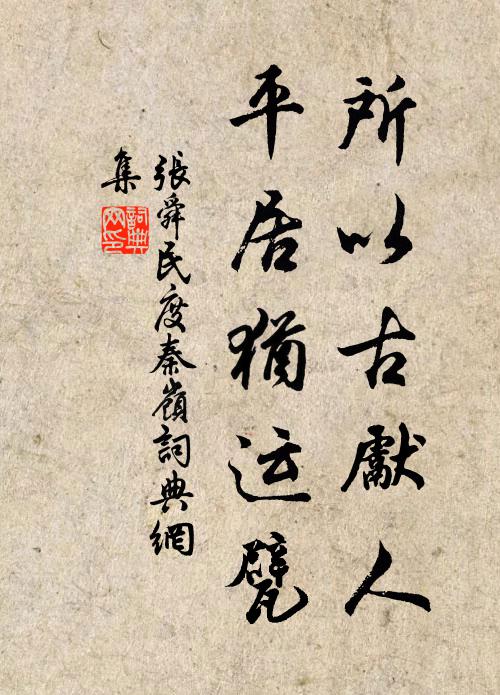 所以古獻人
平居猶运甓
張舜民度秦嶺詞典網
集
詞典网印